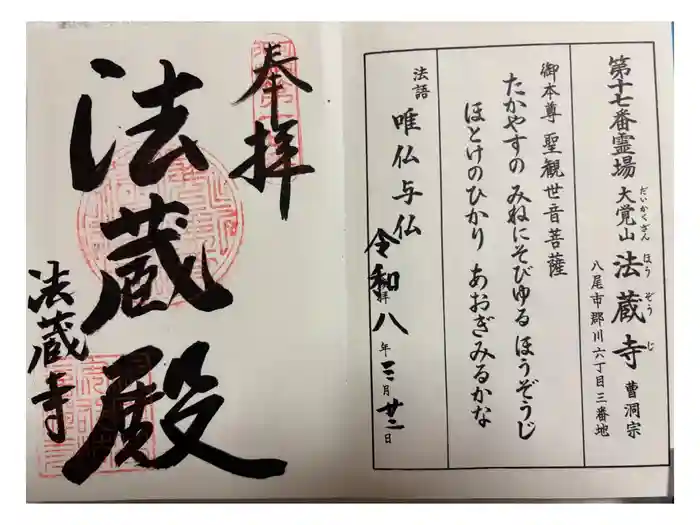 第十七番霊場 大覚山 法蔵寺 曹洞宗
だいかくざん ほうぞうじ
八尾市郡川六丁目三番地
御本尊 聖観世音菩薩
たかやすの みねにそびゆる ほうぞうじ
ほとけのひかり あおぎみるかな
法語 唯仏与仏
令和八年三月廿二日
奉拝
法蔵殿
法蔵寺